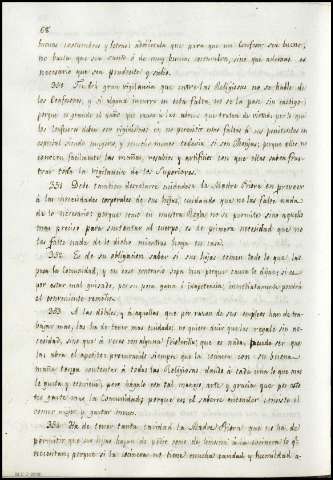 68
buenas costumbres y letras; advirtiendo que para que un Confesor sea bueno,
no basta que sea santo ó de muy buenas costumbres, sino que ademas es
necesario que sea prudente y sabio.
330. Tendrá gran vigilancia que entre las Religiosas no se hable de
los Confesores, y si alguna incurre en esta falta, no se la pase sin castigo;
porque es grande el daño que causa á las almas que tratan de virtud, por lo que
los Confesores deben ser vigilantes en no permitir estas faltas á sus penitentas en
especial siendo mugeres, y mucho menos todavia si son Monjas; porque ellos no
conocen facilmente las mañas, resabios y artificios con que ellas saben frus-
trar toda la vigilancia de los Superiores.
331. Debe tambien desvelarse cuidadosa la Madre Priora en proveer
á las necesidades corporales de sus hijas, cuidando que no las falte nada
de lo necesario; porque como en nuestra Regla no se permite sino aquello
mas preciso para sustentar al cuerpo, es de primera necesidad que no
las falte nada de lo dicho mientras haya en casa.
332. Es de su obligacion saber si sus hijas comen todo lo que las
pasa la Comunidad, y en caso contrario sepa bien porque causa lo dejan; si es
por estar mal guisado, por su poca gana ó inapetencia, inmediatamente pondrá
el conveniente remedio.
333. A las débiles y á aquellas que por razon de sus empleos han de tra-
bajar mas, las ha de tener mas cuidado; no quiero decir que las regale sin ne-
cesidad, sino que á veces con alguna friolerilla que es nada, puede ser que
las abra el apetito; procurando siempre que la cocinera con su buena
maña tenga contentas á todas las Religiosas dando á cada una lo que mas
le gusta y conviene; pero hágalo con tal manejo, arte y gracia que por esto
no gaste mas la Comunidad; porque en el saberes entender consiste el
comer mejor, y gastar menos.
334. Ha de tener tanta caridad la Madre Priora que no ha de
permitir que sus hijas hayan de pedir como de limosna á la cocinera lo que
necesitan; porque si la cocinera no tiene mucha caridad y humildad á